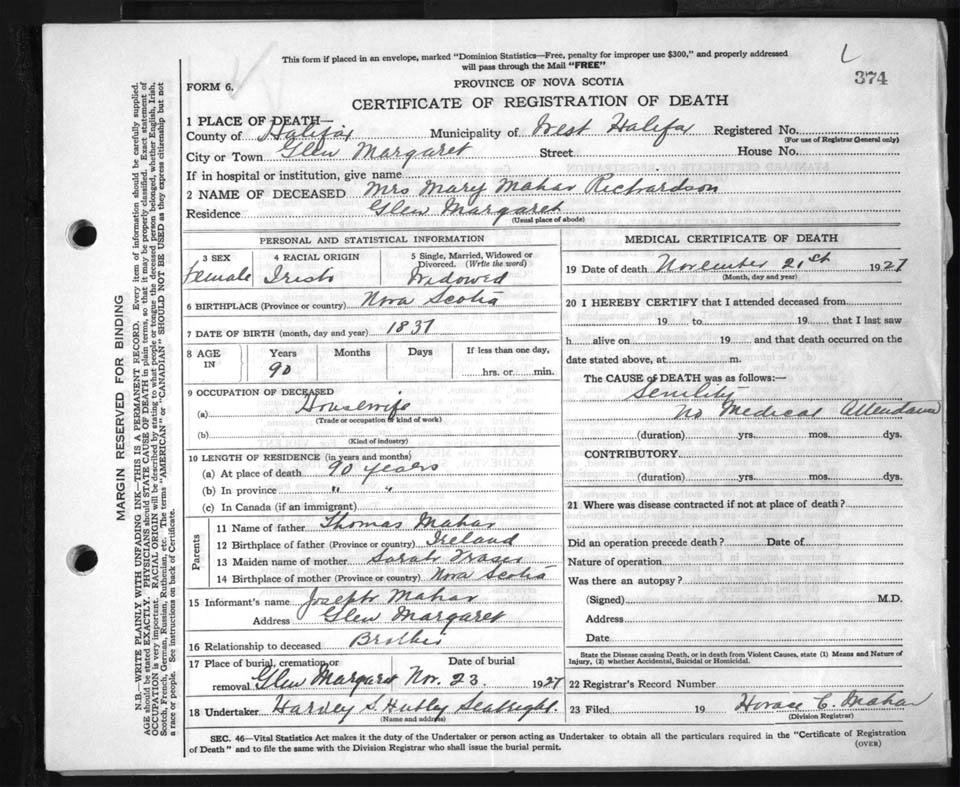 This form if placed in an envelope, marked "Dominion Statistics—Free, penalty for improper use $300," and properly addressed
will pass through the Mail "FREE"
L
374
FORM 6.
PROVINCE OF NOVA SCOTIA
CERTIFICATE OF REGISTRATION OF DEATH
1 PLACE OF DEATH—
County of Halifax Municipality of West Halifax Registered No.
(For use of Registrar General only)
City or Town Glen Margaret Street House No.
If in hospital or institution, give name
2 NAME OF DECEASED Mrs Mary Mahar Richardson
Residence Glen Margaret
(Usual place of abode)
PERSONAL AND STATISTICAL INFORMATION
3 SEX 4 RACIAL ORIGIN 5 Single, Married, Widowed or
Divorced. (Write the word)
Female Irish Widowed
6 BIRTHPLACE (Province or country) Nova Scotia
7 DATE OF BIRTH (month, day and year) 1837
8 AGE IN Years Months Days If less than one day,
90 hrs. or min.
9 OCCUPATION OF DECEASED
(a) Housewife
(Trade or occupation or kind of work)
(b)
(Kind of industry)
10 LENGTH OF RESIDENCE (in years and months)
(a) At place of death 90 years
(b) In province " "
(c) In Canada (if an immigrant)
Parents
11 Name of father Thomas Mahar
12 Birthplace of father (Province or country) Ireland
13 Maiden name of mother Sarah Fraser
14 Birthplace of mother (Province or country) Nova Scotia
15 Informant's name Joseph Mahar
Address Glen Margaret
16 Relationship to deceased Brother
17 Place of burial, cremation or Date of burial
removal Glen Margaret Nov. 23. 1927
18 Undertaker Harvey S. Hubly Seabright.
(Name and address)
MEDICAL CERTIFICATE OF DEATH
19 Date of death November 21st 1927
(Month, day and year)
20 I HEREBY CERTIFY that I attended deceased from
19 to 19 that I last saw
h alive on 19 and that death occurred on the
date stated above, at m.
The CAUSE of DEATH was as follows:—
Senility
No Medical Attendance
(duration) yrs. mos. dys.
CONTRIBUTORY
(duration) yrs. mos. dys.
21 Where was disease contracted if not at place of death?
Did an operation precede death? Date of
Nature of operation
Was there an autopsy?
(Signed) M.D.
Address
Date
State the Disease causing Death, or in death from Violent Causes, state (1) Means and Nature of
Injury, (2) whether Accidental, Suicidal or Homicidal.
22 Registrar's Record Number
23 Filed 19 Horace C. Mahar
(Division Registrar)
SEC. 46—Vital Statistics Act makes it the duty of the Undertaker or person acting as Undertaker to obtain all the particulars required in the "Certificate of Registration
of Death" and to file the same with the Division Registrar who shall issue the burial permit.
(OVER)
MARGIN RESERVED FOR BINDING
N.B.—WRITE PLAINLY WITH UNFADING INK—THIS IS A PERMANENT RECORD. Every item of information should be carefully supplied.
AGE should be stated EXACTLY. PHYSICIANS should STATE CAUSE OF DEATH in plain terms, so that it may be properly classified. Exact statement of
OCCUPATION is very important. RACIAL ORIGIN will be described by stating to what people or tongue the deceased person belonged, whether English, Irish,
Scotch, French, German, Russian, Ruthenian, etc. The terms "AMERICAN" or "CANADIAN" SHOULD NOT BE USED as they express citizenship but not
a race or people. See instructions on back of Certificate.